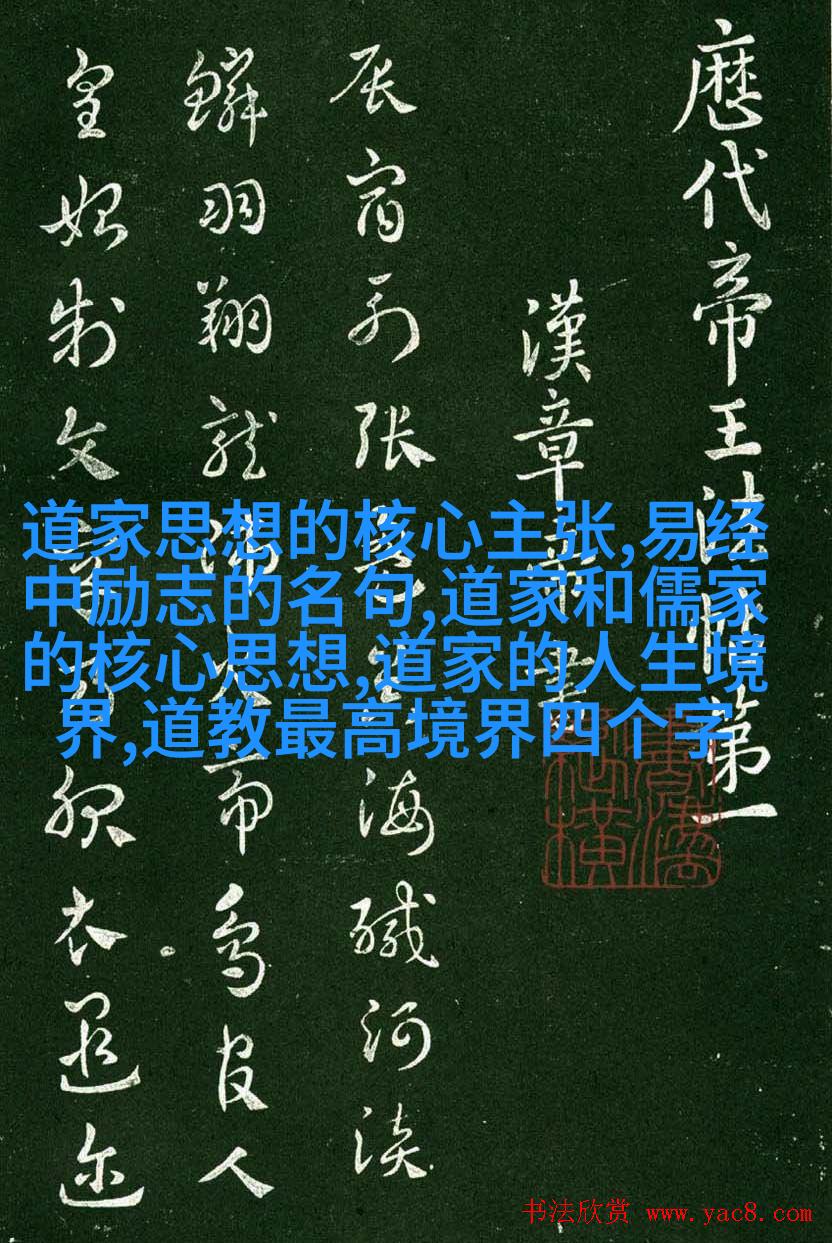 歷代帝王法帖第一
漢章帝書
辰宿列張
海鹹河淡
鱗羽翔龍師火帝鳥官人
皇始制文字乃服衣遐迩
道家思想的核心主张,易经
中励志的名句,道家和儒家
的核心思想,道家的人生境
界,道教最高境界四个字
书法欣赏 www.yac8.com